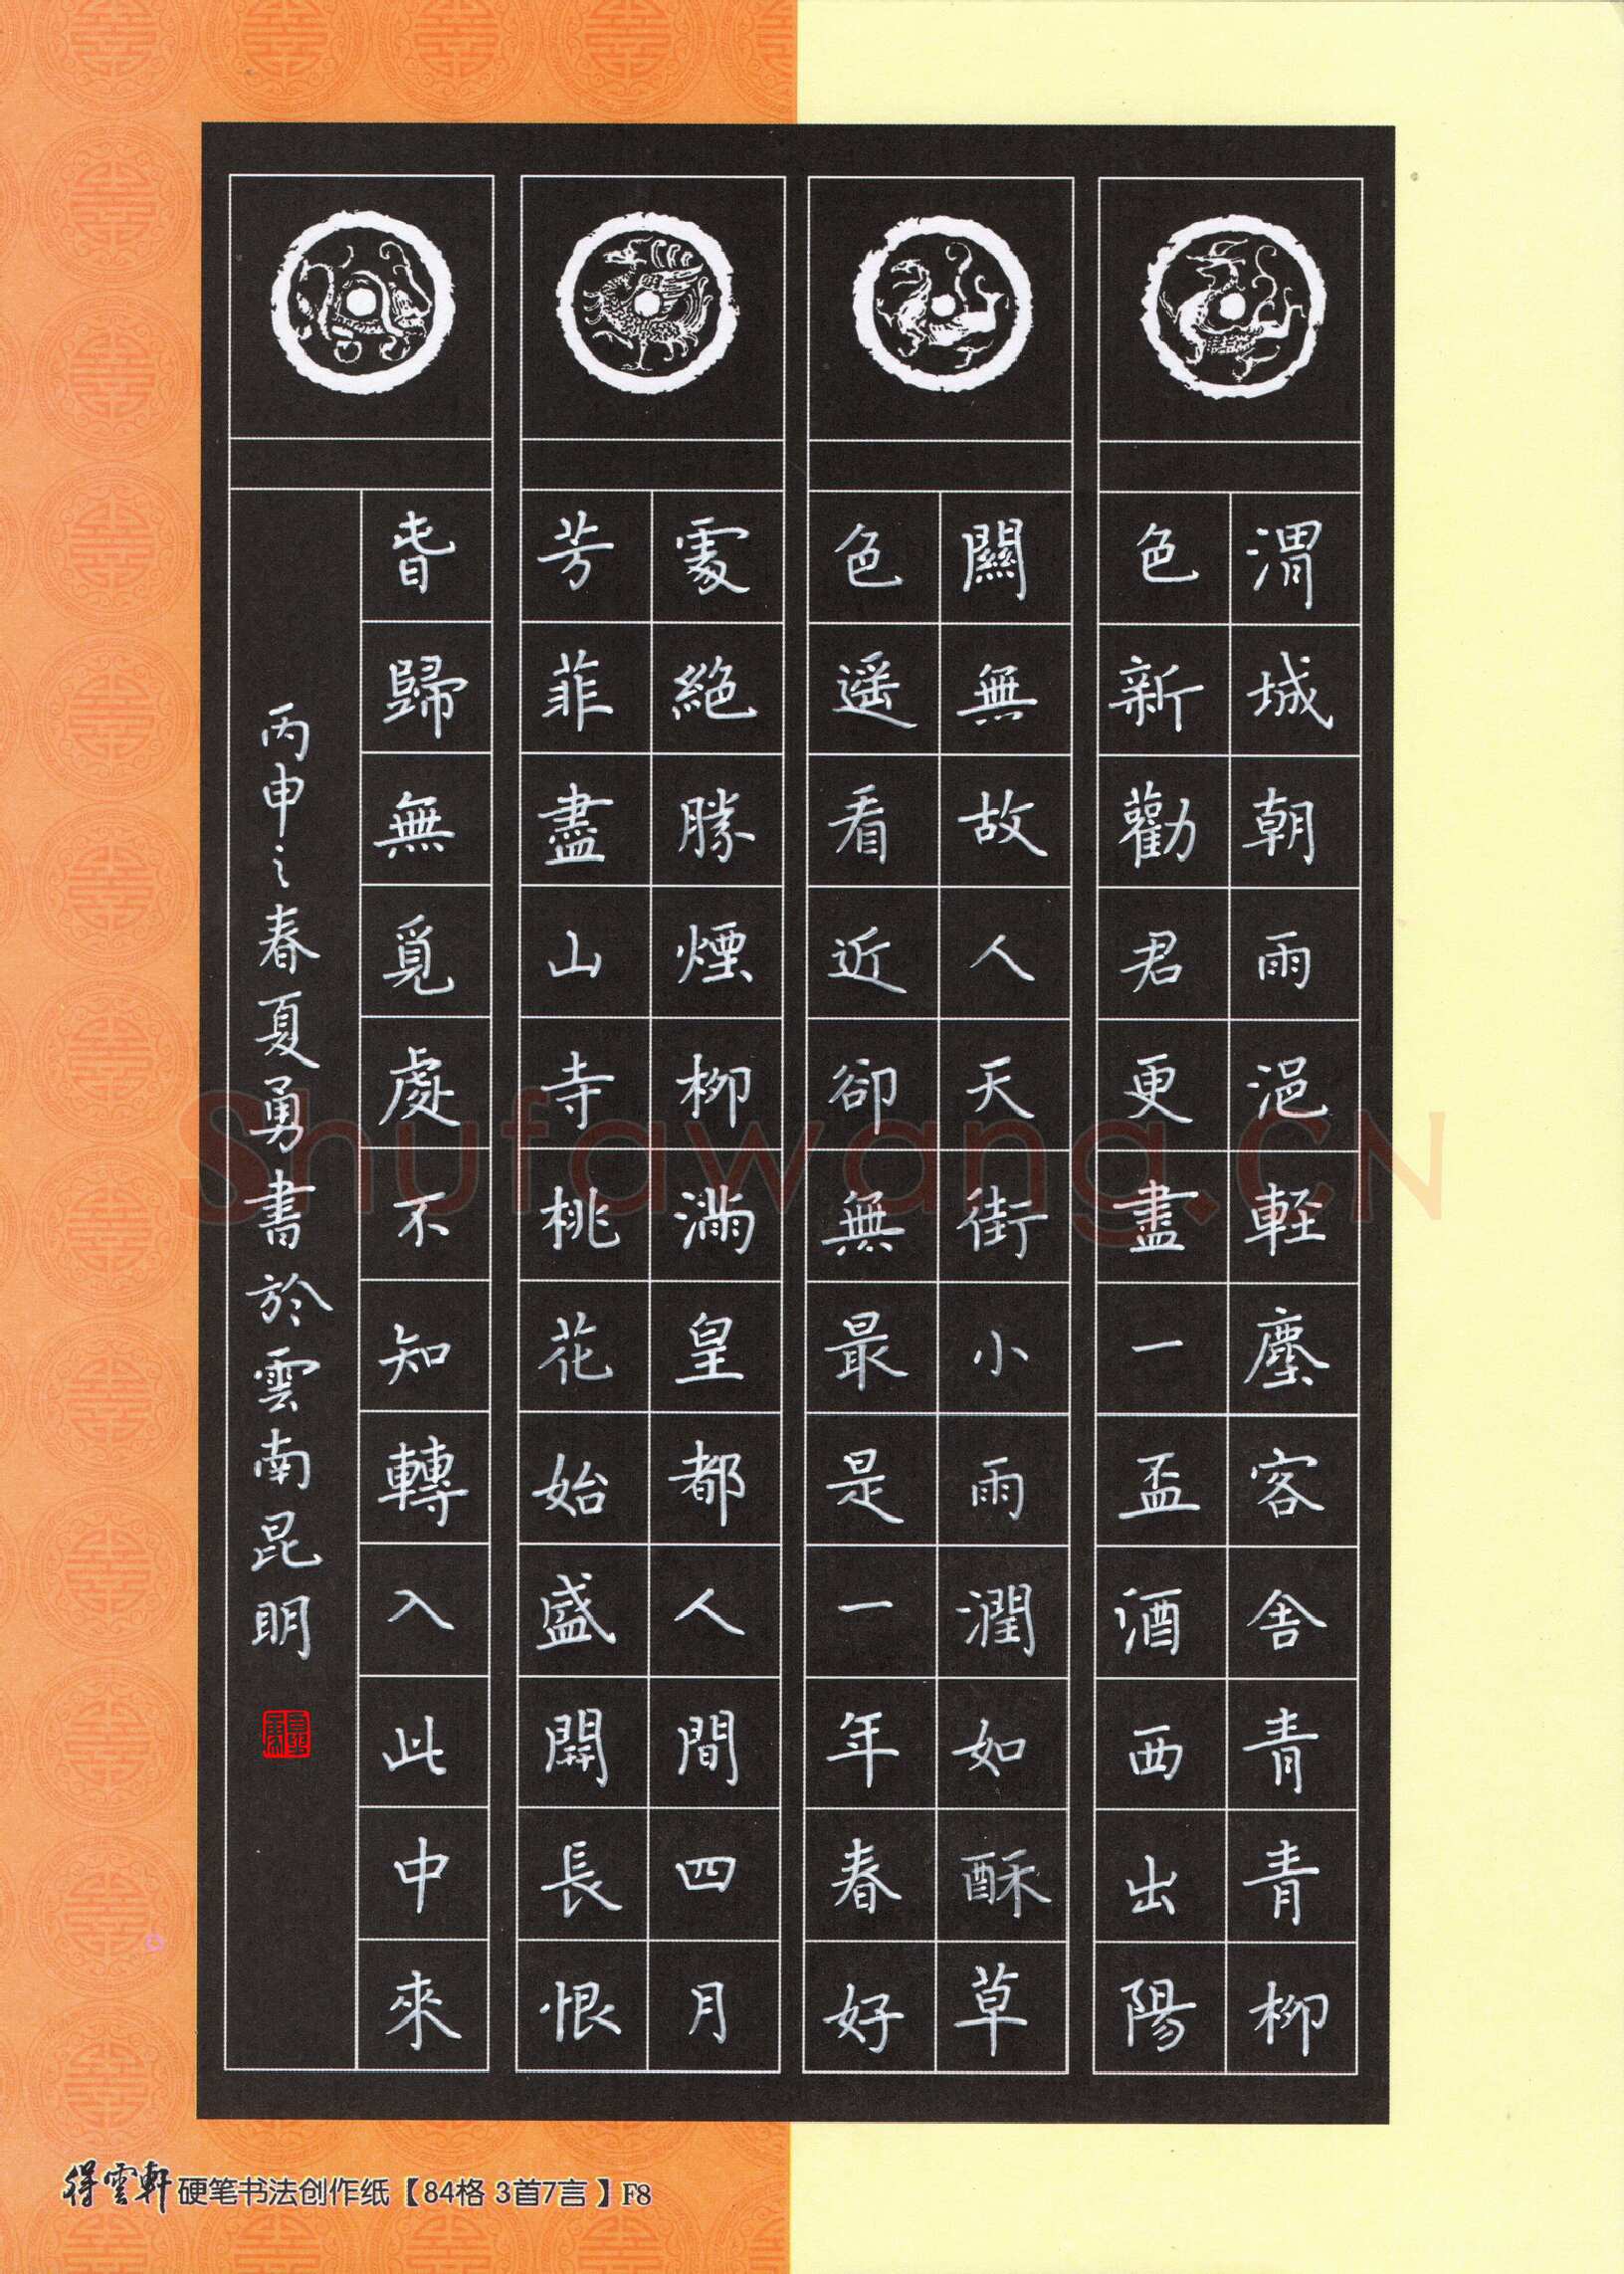 渭城朝雨浥輕塵客舍青青柳
色新勸君更盡一盃酒西出陽
關無故人天街小雨潤如酥草
色遥看近卻無最是一年春好
處絕勝煙柳滿皇都人間四月
芳菲盡山寺桃花始盛開長恨
春歸無覓處不知轉入此中來
丙申之春夏勇書於雲南昆明
得雲軒硬笔书法创作纸【84格 3首7言】F8
Shufawang.CN